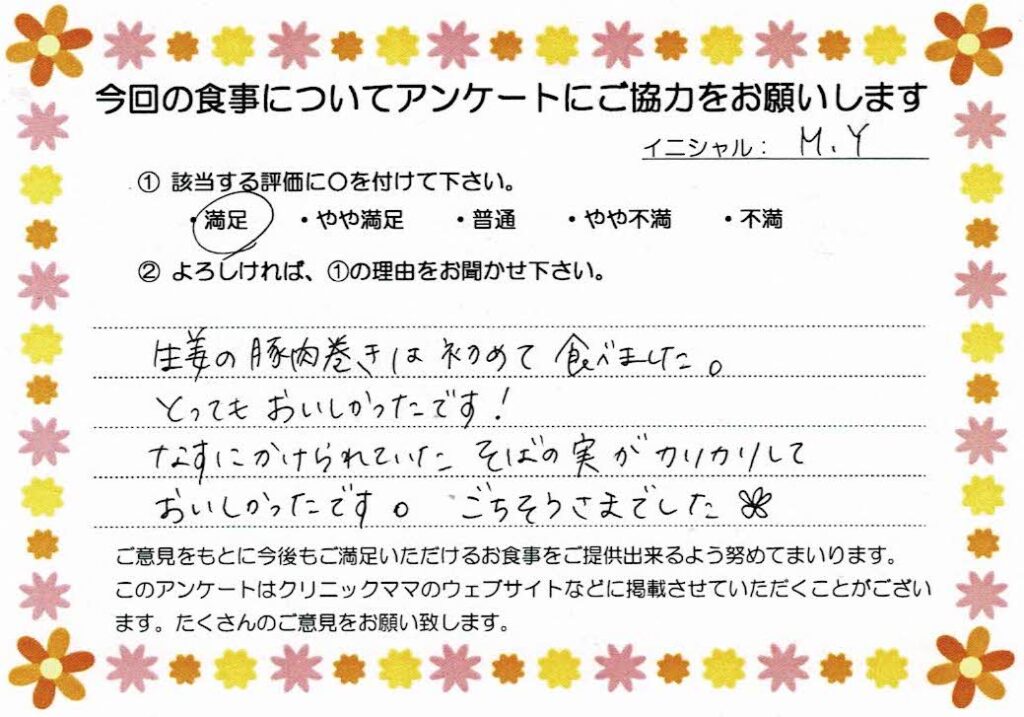 今回の食事についてアンケートにご協力をお願いします
イニシャル： M.Y
① 該当する評価に〇を付けて下さい。
・満足 ・やや満足 ・普通 ・やや不満 ・不満
② よろしければ、①の理由をお聞かせ下さい。
生姜の豚肉巻きは初めて食べました。
とってもおいしかったです！
なすにかけられていたそばの実がカリカリして
おいしかったです。 ごちそうさまでした
ご意見をもとに今後もご満足いただけるお食事をご提供出来るよう努めてまいります。
このアンケートはクリニックママのウェブサイトなどに掲載させていただくことがござい
ます。たくさんのご意見をお願い致します。